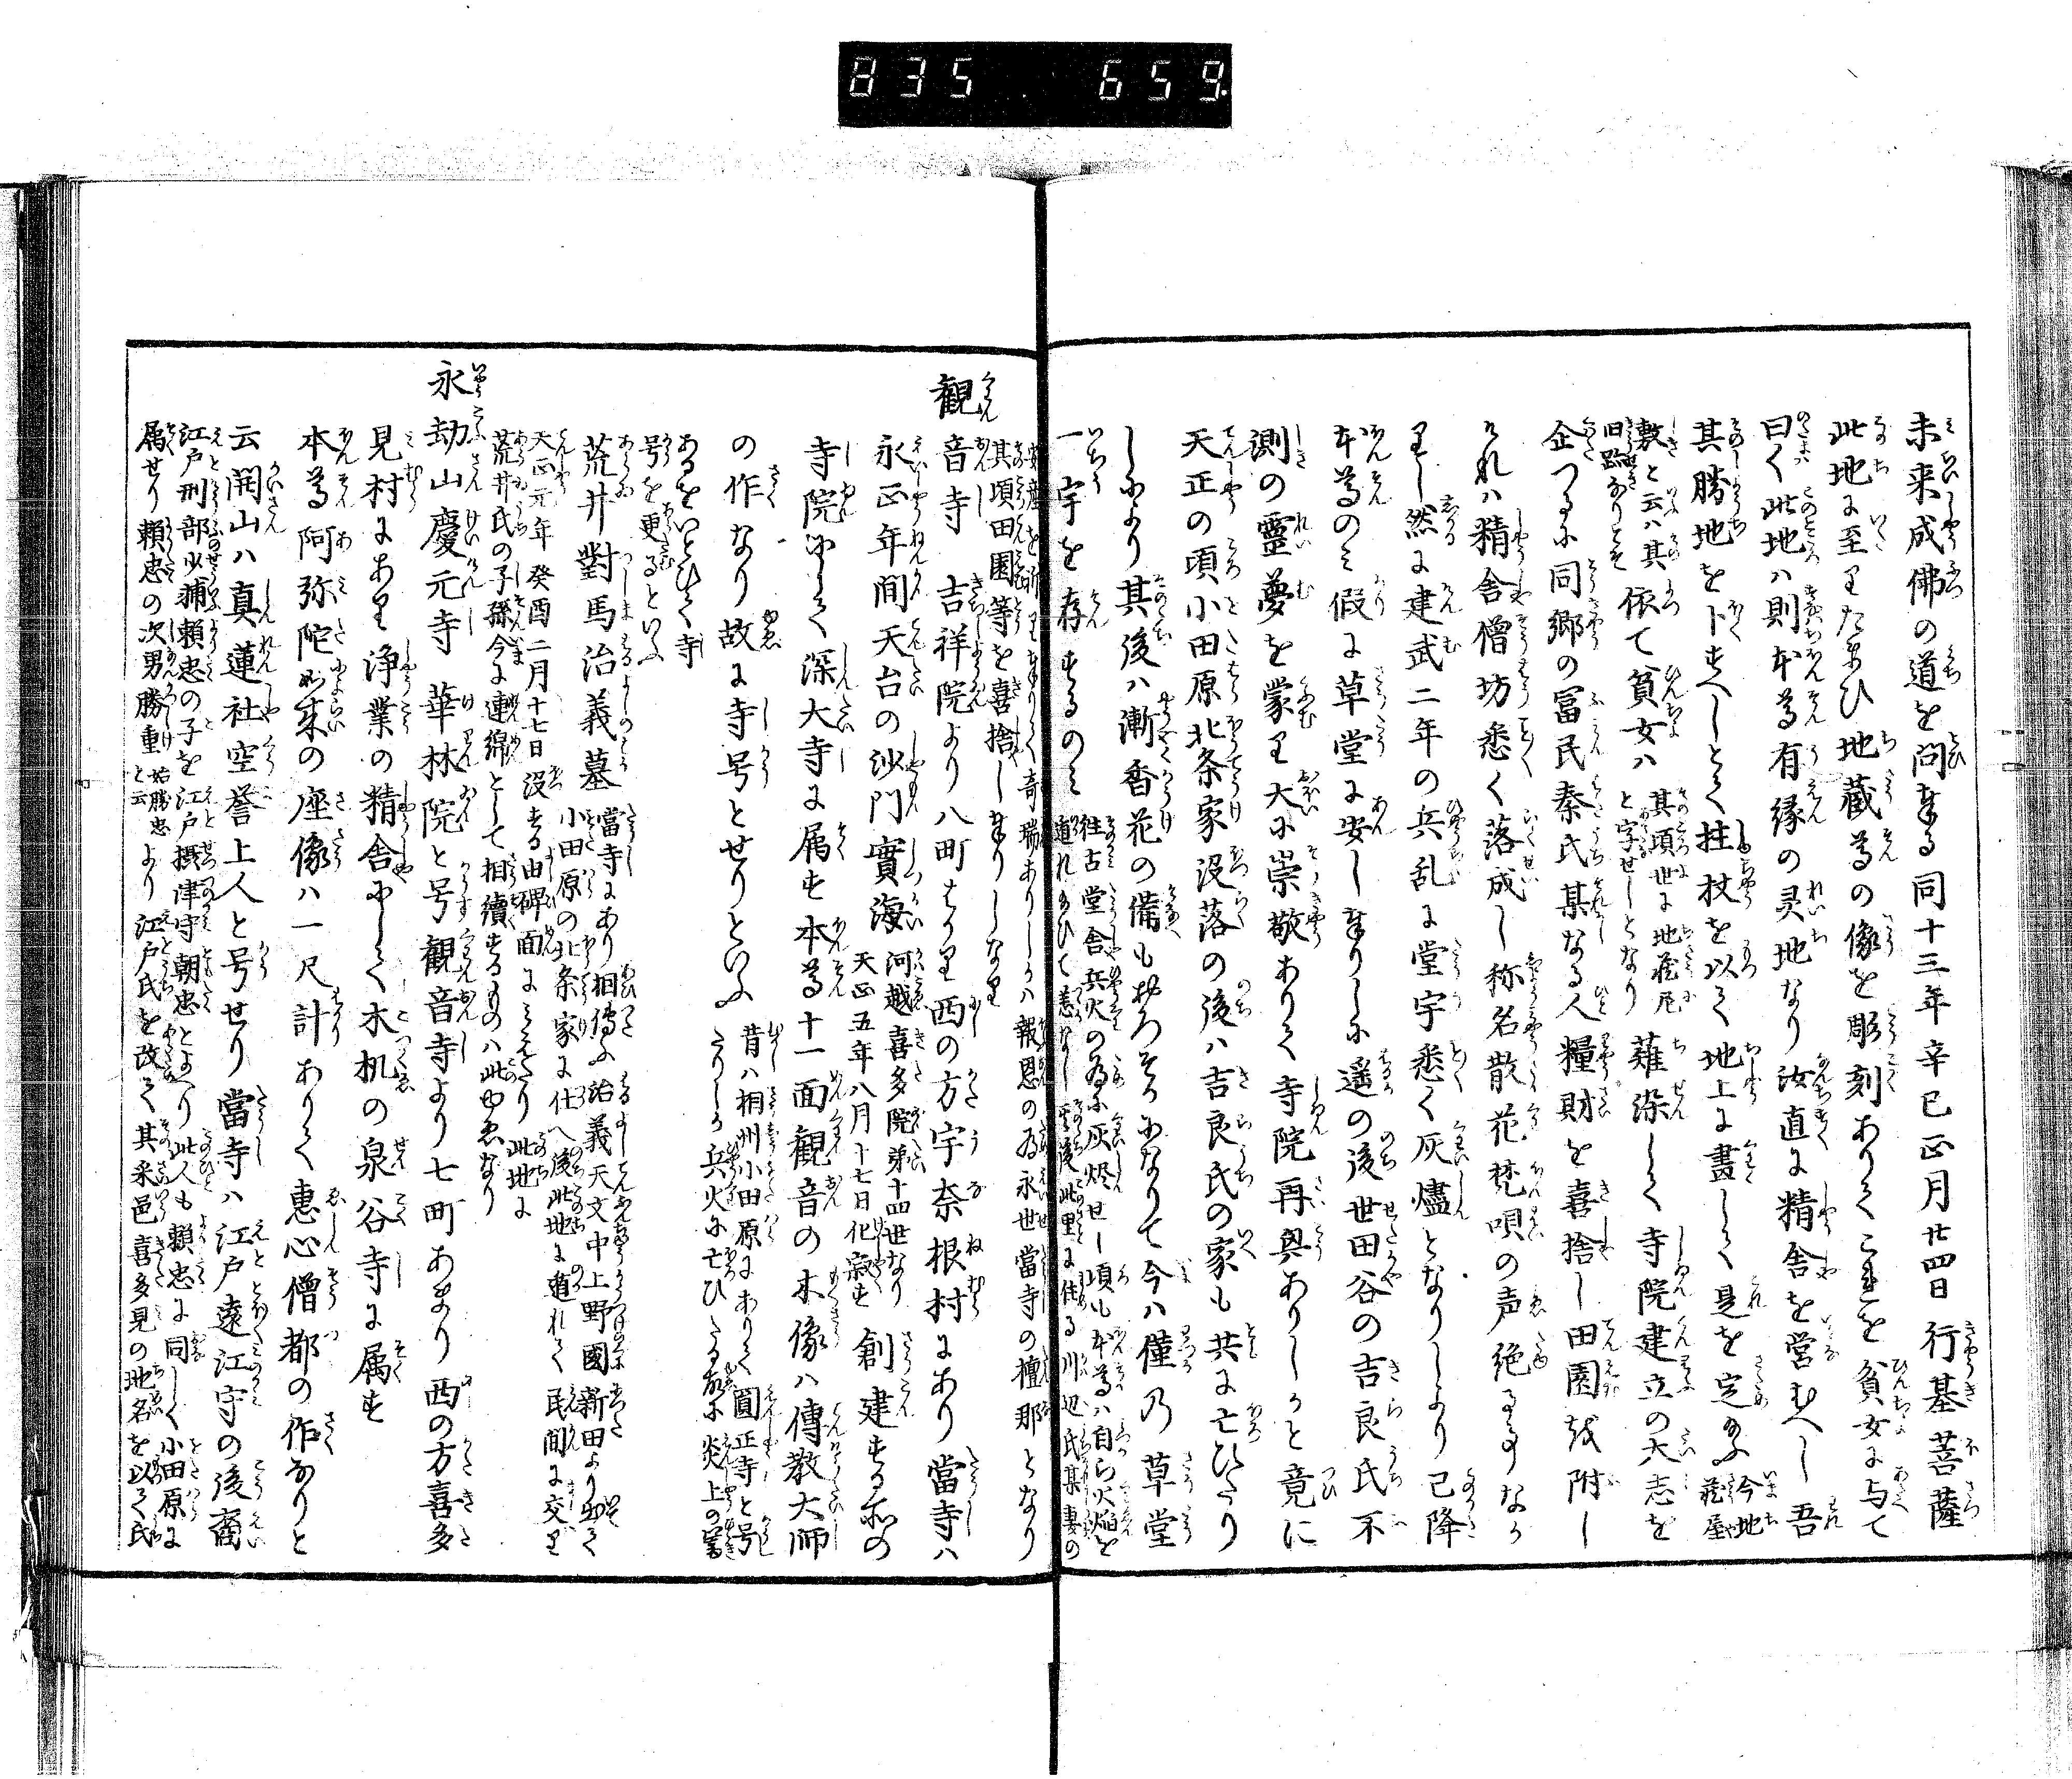 835 659.
未来成佛の道を問奉る同十三年辛巳正月廿四日行基菩薩
此地に至りたまひ地蔵尊の像を彫刻ありてこれを貧女に与て
曰く此地ハ則本尊有縁の灵地なり汝直に精舎を営むへし吾
其勝地を卜すへしとて拄杖を以て地上に畫して是を定給ふ今地蔵屋
敷と云ハ其旧跡なりとそ依て貧女ハ其頃世に地蔵尼と字せしとなり薙染して寺院建立の大志を
企つるに同郷の冨民秦氏某なる人糧財を喜捨し田園を附し
けれハ精舎僧坊悉く落成し称名散花梵唄の声絶る事なか
りし然に建武二年の兵乱に堂宇悉く灰燼となりしより已降
本尊のミ假に草堂に安し奉りしに遥の後世田谷の吉良氏不
測の靈夢を蒙り大に崇敬ありて寺院再興ありしかと竟に
天正の頃小田原北条家没落の後ハ吉良氏の家も共に亡ひたり
しかより其後ハ漸香花の備もおろそかになりて今ハ僅乃草堂
一宇を存するのミ往古堂舎兵火の為に灰燼せし頃も本尊ハ自ら火焔を
遁れ給ひて恙なし其後此里に住る川辺氏某妻の
安産を祈り奉りて奇瑞ありしかハ報恩の為永世當寺の檀那となり
其頃田園等を喜捨し奉りしなり
観音寺 吉祥院より八町はかり西の方宇奈根村にあり當寺ハ
永正年間天台の沙門實海河越喜多院第十四世なり天正五年八月十七日化寂す創建する所の
寺院にして深大寺に属す本尊十一面観音の木像ハ傳教大師
の作なり故に寺号とせりといふ昔ハ相州小田原にありて圓正寺と号
たりしか兵火に亡ひたる故に炎上の響
あるをいとひて寺
号を更るといふ
荒井對馬治義墓 當寺にあり相傳ふ治義天文中上野國新田より出て
小田原の北条家に仕へ後此地に遁れて民間に交り
天正元年癸酉二月十七日没する由碑面にミえたり此地に
荒井氏の子孫今に連綿として相續するものハ此ゆゑなり
永劫山慶元寺 華林院と号観音寺より七町あまり西の方喜多
見村にあり浄業の精舎にして木机の泉谷寺に属す
本尊阿弥陀如来の座像ハ一尺計ありて惠心僧都の作なりと
云開山ハ真蓮社空誉上人と号せり當寺ハ江戸遠江守の後裔
江戸刑部少輔頼忠の子を江戸摂津守朝忠とよへり此人も頼忠に同しく小田原に
属せり頼忠の次男勝重始勝忠と云より江戸氏を改て其采邑喜多見の地名を以て氏